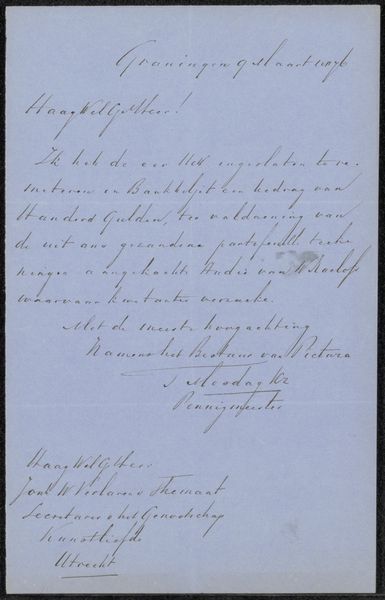 Groningen 9 Maart 1876
Haag Wel Geb Heer!
Ik heb de eer UEd ingesloten te re-
meteren in Bankbiljet een bedrag van
Honderd Gulden, ter voldoening van
de uit ons gezonden portefeuille teeke
ningen aangekochte Studie van W Roelofs
waarvan kwitantie verzoeke.
Met de meeste hoogachting
Namens het Bestuur van Pictura
Penningmeester
Haag Wel Gb Heer
Jonkr W Verloren v Themaat
Secretaris v het Genootschap
Kunstliefde
Utrecht